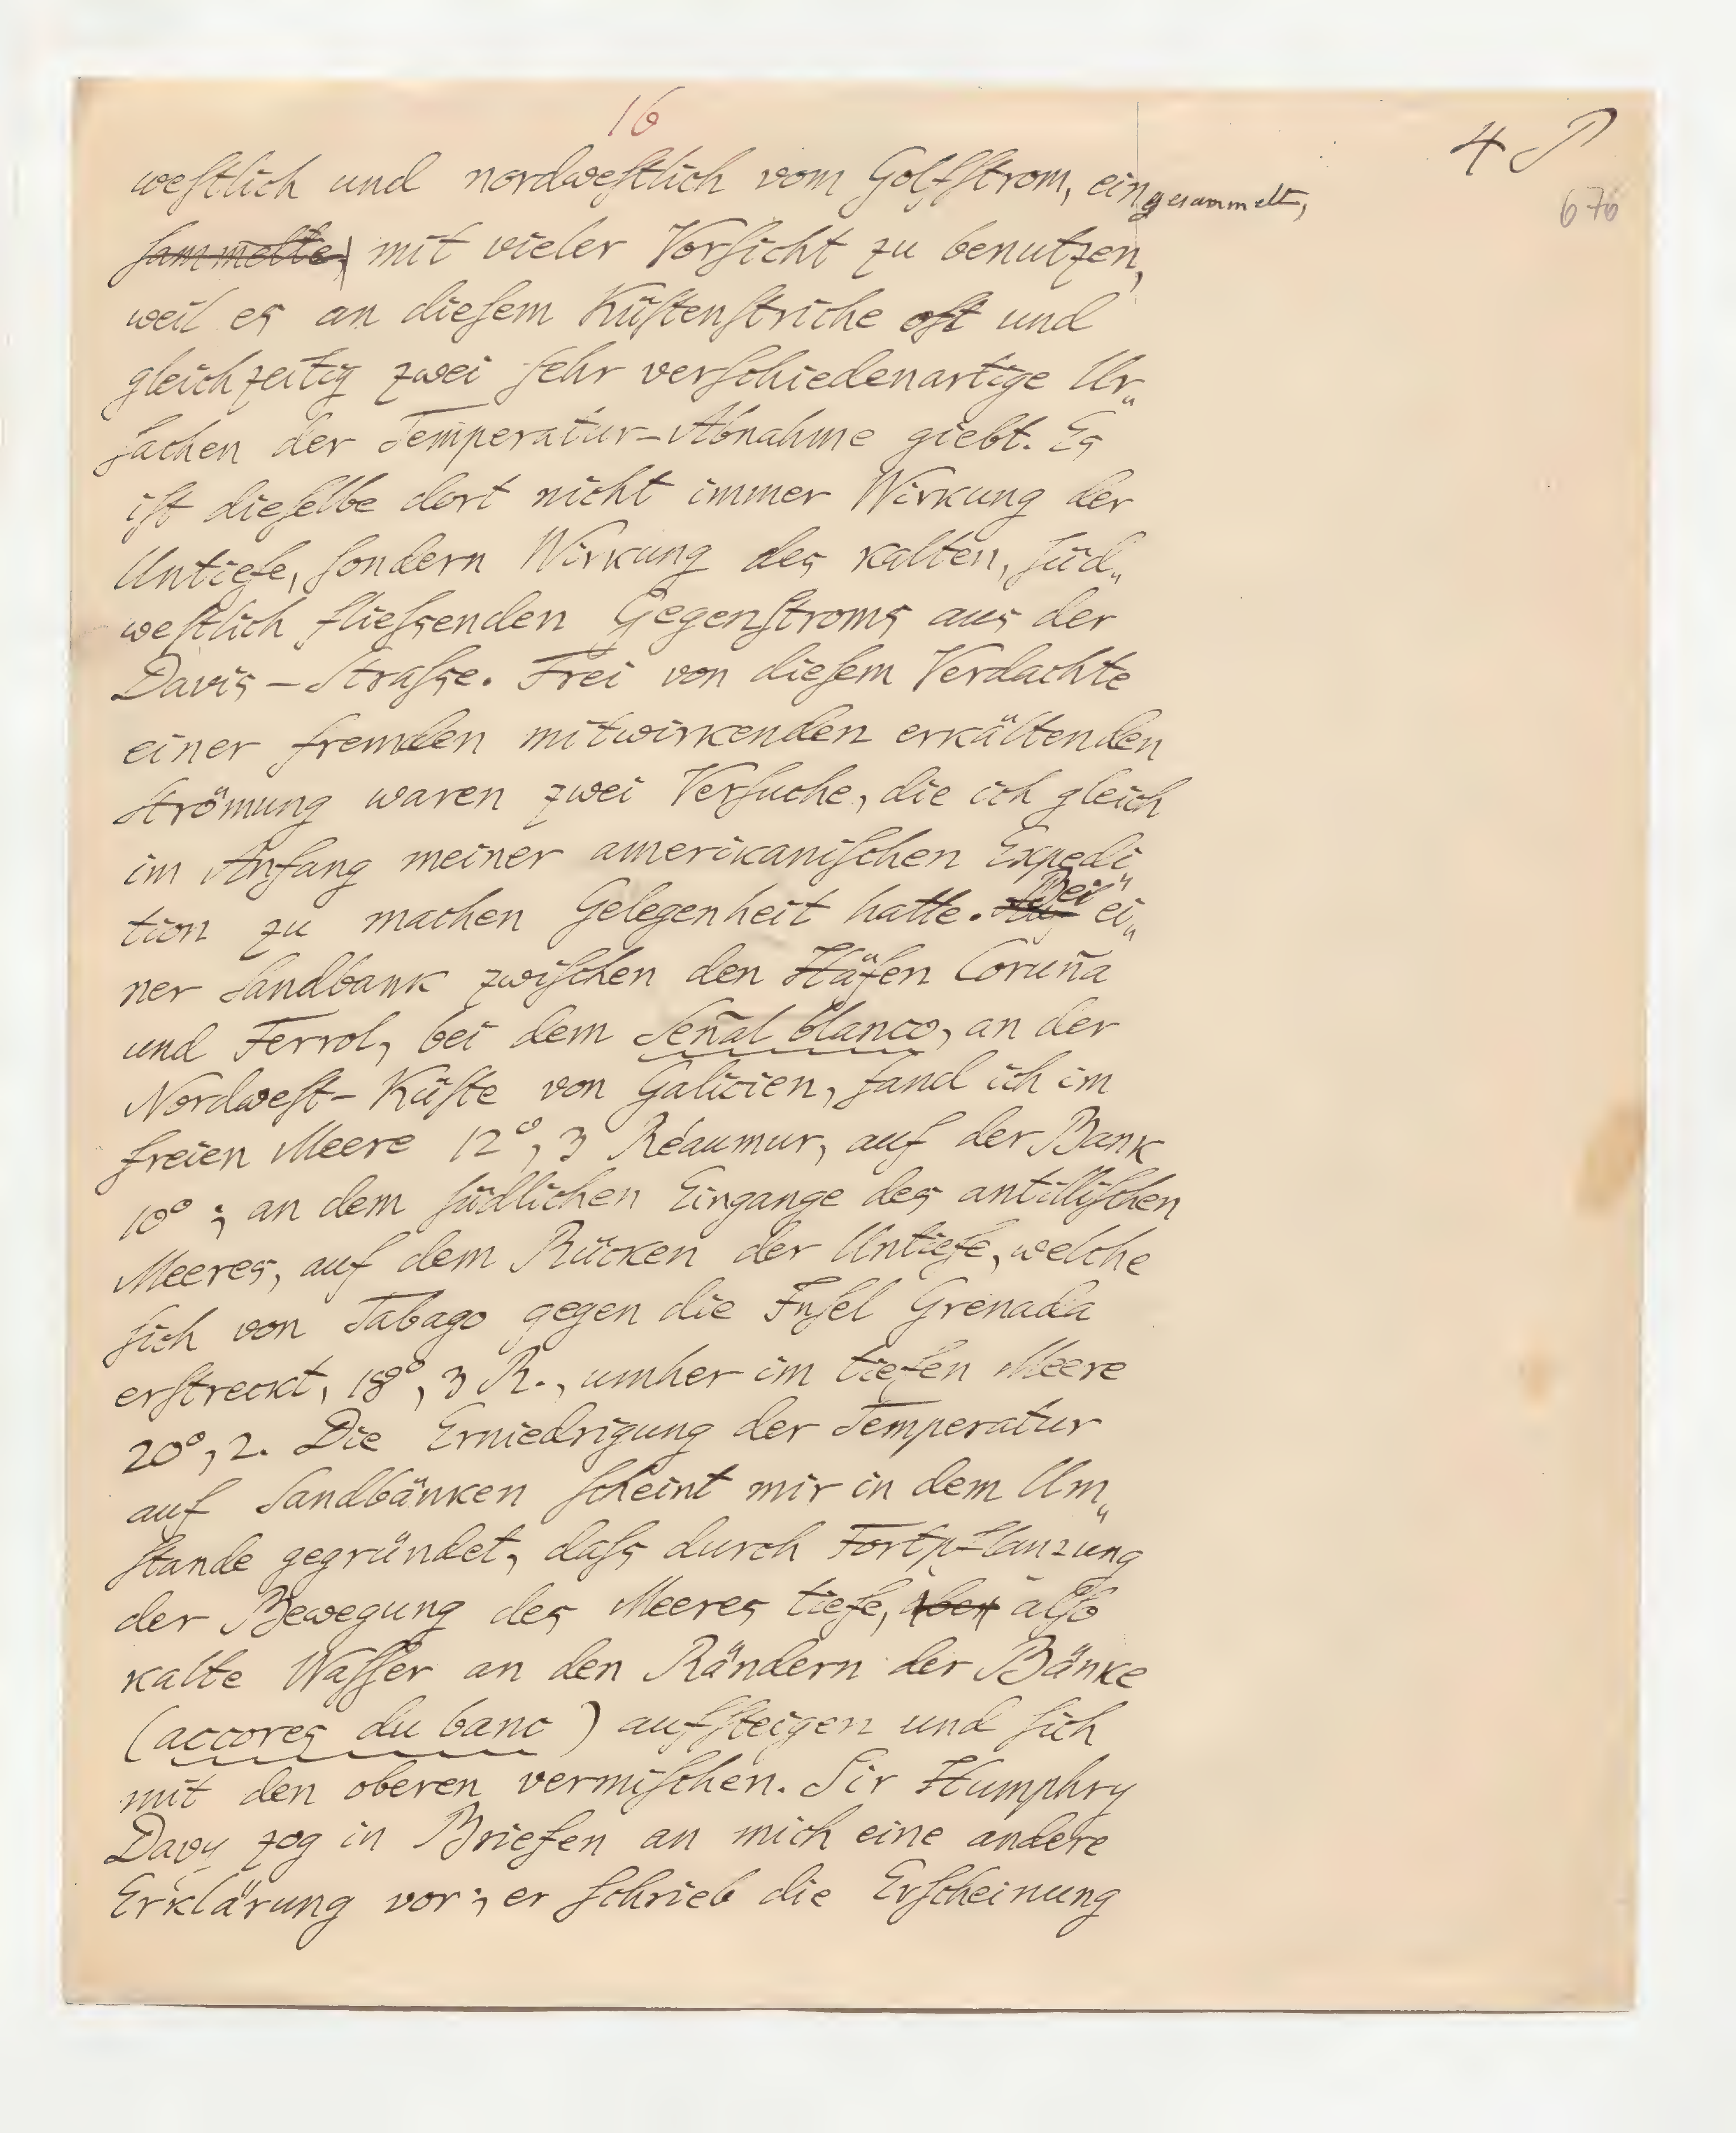 16
4
676
westlich und nordwestlich vom Golfstrom, eingesammelt,
sammelte mit vieler Vorsicht zu benutzen,
weil es an diesem Küstenstriche oft und
gleichzeitig zwei sehr verschiedenartige Ur„
sachen der Temperatur-Abnahme giebt. Es
ist dieselbe dort nicht immer Wirkung der
Untiefe, sondern Wirkung des kalten, süd„
westlich fliessenden Gegenstroms aus der
Davis-Strasse. Frei von diesem Verdachte
einer fremden mitwirkenden erkältenden
Strömung waren zwei Versuche, die ich gleich
im Anfang meiner amerikanischen Expedi„
tion zu machen Gelegenheit hatte. Bei ei„
ner Sandbank zwischen den Häfen Coruña
und Ferrol, bei dem Señal blanco, an der
Nordwest-Küste von Galicien, fand ich im
freien Meere 12°, 3 Réaumur, auf der Bank
10°; an dem südlichen Eingange des antillischen
Meeres, auf dem Rücken der Untiefe, welche
sich von Tabago gegen die Insel Grenada
erstreckt, 18°, 3 R., umher im tiefen Meere
20°, 2. Die Erniedrigung der Temperatur
auf Sandbänken scheint mir in dem Um„
stande gegründet, dass durch Fortpflanzung
der Bewegung des Meeres tiefe, aber also
kalte Wasser an den Rändern der Bänke
(accores du banc) aufsteigen und sich
mit den oberen vermischen. Sir Humphry
Davy zog in Briefen an mich eine andere
Erklärung vor; er schrieb die Erscheinung